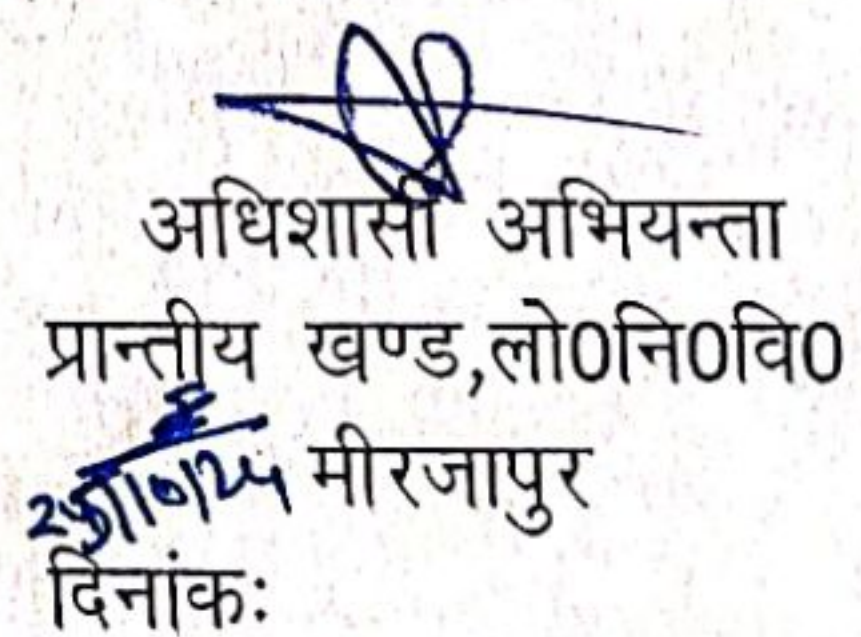 अधिशासी अभियन्ता
प्रान्तीय खण्ड,लो0नि0वि0
मीरजापुर
दिनांक: